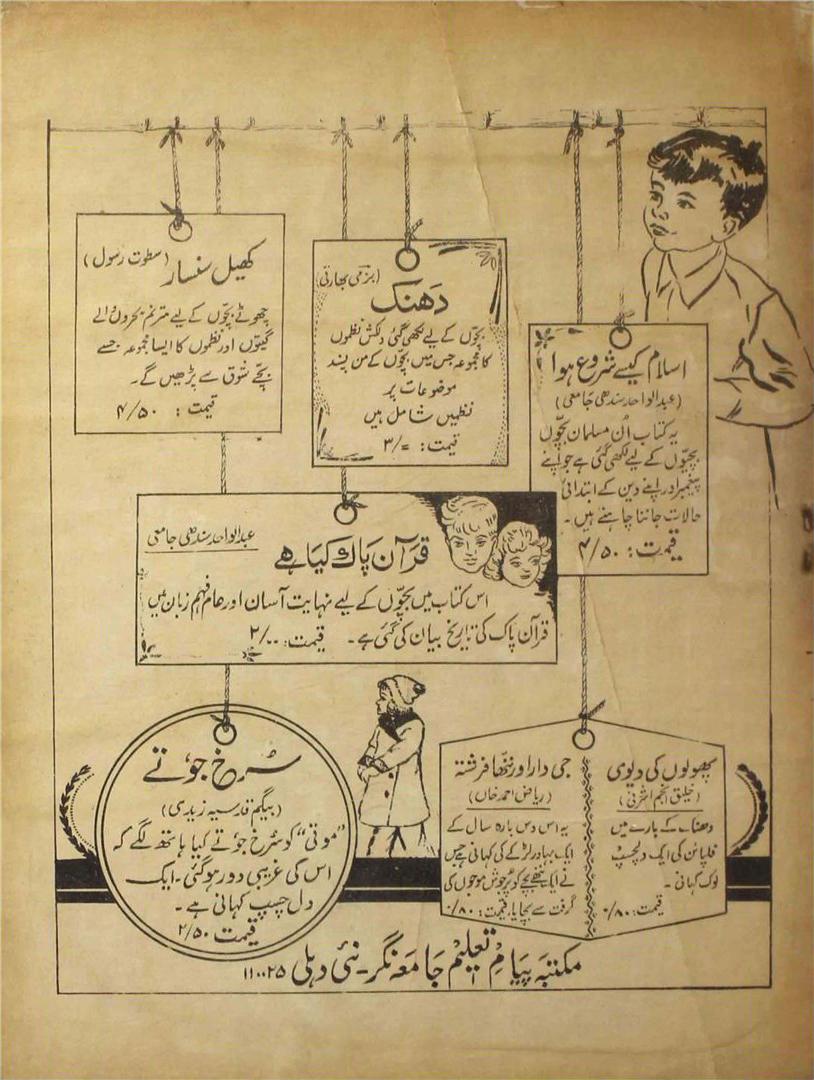 کھیل سنسار (سطوت رسول)
چھوٹے بچّوں کے لیے مترنم بحروں والے
گیتوں اور نظموں کا ایسا مجموعہ جسے
بچّے شوق سے پڑھیں گے۔
قیمت: ۴/۵۰
(بزمی بھارتی)
دَھنک
بچّوں کے لیے لکھی گئی دلکش نظموں
کا مجموعہ جس میں بچّوں کے من پسند
موضوعات پر
نظمیں شامل ہیں
قیمت: ۳/=
اسلام کیسے شروع ہوا
(عبدالواحد سندھی جامعی)
یہ کتاب اُن مسلمان بچّوں
بچیّوں کے لیے لکھی گئی ہے جو اپنے
پیغمبر اور اپنے دین کے ابتدائی
حالات جاننا چاہتے ہیں۔
قیمت: ۴/۵۰
عبدالواحد سندھی جامعی
قرآن پاک کیا ہے
اس کتاب میں بچّوں کے لیے نہایت آسان اور عام فہم زبان میں
قرآن پاک کی تاریخ بیان کی گئی ہے۔ قیمت: ۲/۰۰
سُرخ جوُتے
(بیگم قدسیہ زیدی)
"موتی" کو سُرخ جوُتے کیا ہاتھ لگے کہ
اس کی غریبی دور ہوگئی۔ ایک
دل چسپ کہانی ہے۔
قیمت ۲/۵۰
پھولوں کی دیوی
(خلیق انجم اشرفی)
دھنک کے بارے میں
فلپائن کی ایک دلچسپ
لوک کہانی۔
قیمت: ۰/۸۰
جی دار اور ننّھا فرشتہ
(ریاض احمد خاں)
یہ اس دس بارہ سال کے
ایک بہادر لڑکے کی کہانی ہے جس
نے ایک ننھے بچے کو پُرجوش موجوں کی
گرفت سے بچایا۔ قیمت: ۰/۸۰
مکتبہ پیامِ تعلیم جامعہ نگر۔ نئی دہلی ۱۱۰۰۲۵